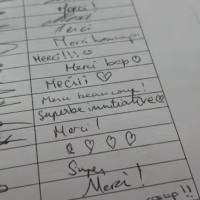 Merci !
Merci
Merci beaucoup
Merci!!! ☺
Merci bcp ☺
Merciii ♡
Merci beaucoup !
Superbe initiative ♡
Merci !
♡ ♡ ♡
Super
Merci !